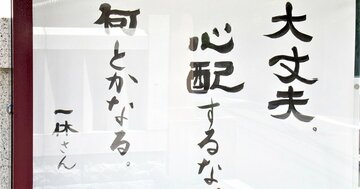 大丈夫。
心配するな、
何とかなる。
一休さん